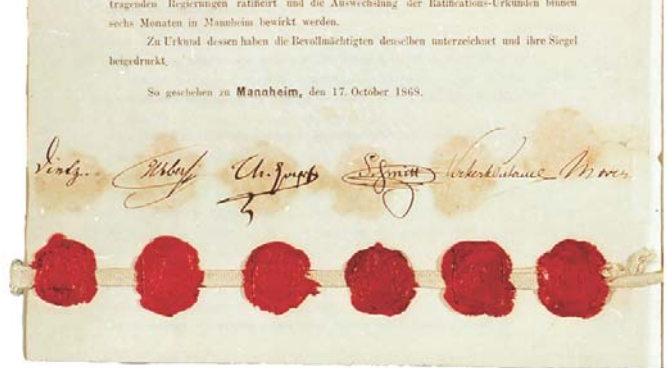 tragenden Regierungen ratificirt und die Auswechslung der Ratifications-Urkunden binnen
sechs Monaten in Mannheim bewirkt werden.
Zu Urkund dessen haben die Bevollmächtigten denselben unterzeichnet und ihre Siegel
beigedruckt.
So geschehen zu Mannheim, den 17. October 1868.
Dietz. Schmitt